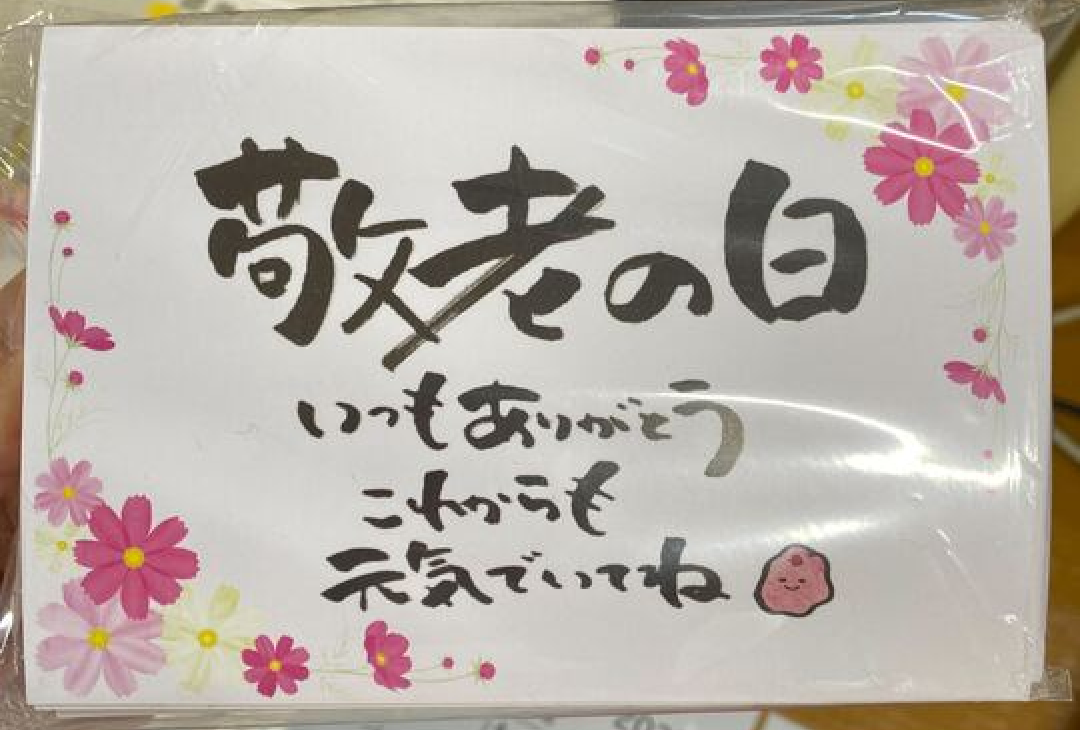 敬老の日
いつもありがとう
これからも
元気でいてね